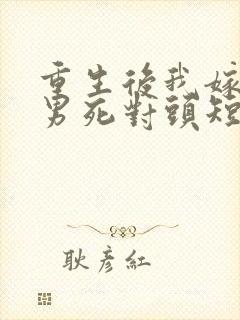 重生後我嫁
男死對頭短
耿彥紅